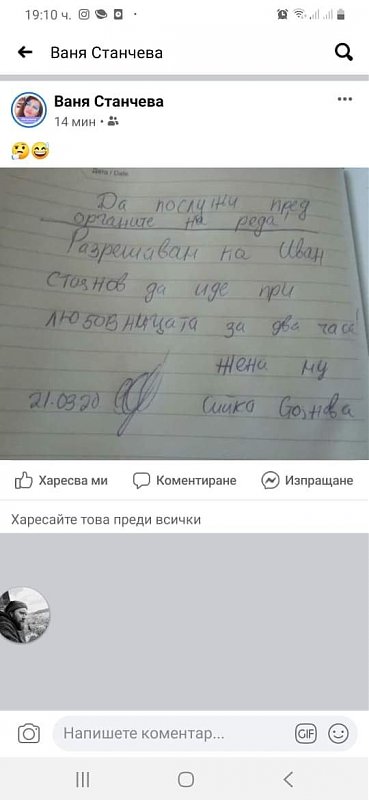 19:10 ч.
Ваня Станчева
Ваня Станчева
14 мин
Дата / Date:
Да послужи пред
органите на реда,
Разрешавам на Иван
Стоянов да иде при
любовницата за два часа!
жена му
21.03.20
Сийка Стоянова
Харесва ми
Коментиране
Изпращане
Харесайте това преди всички
Напишете коментар...
GIF